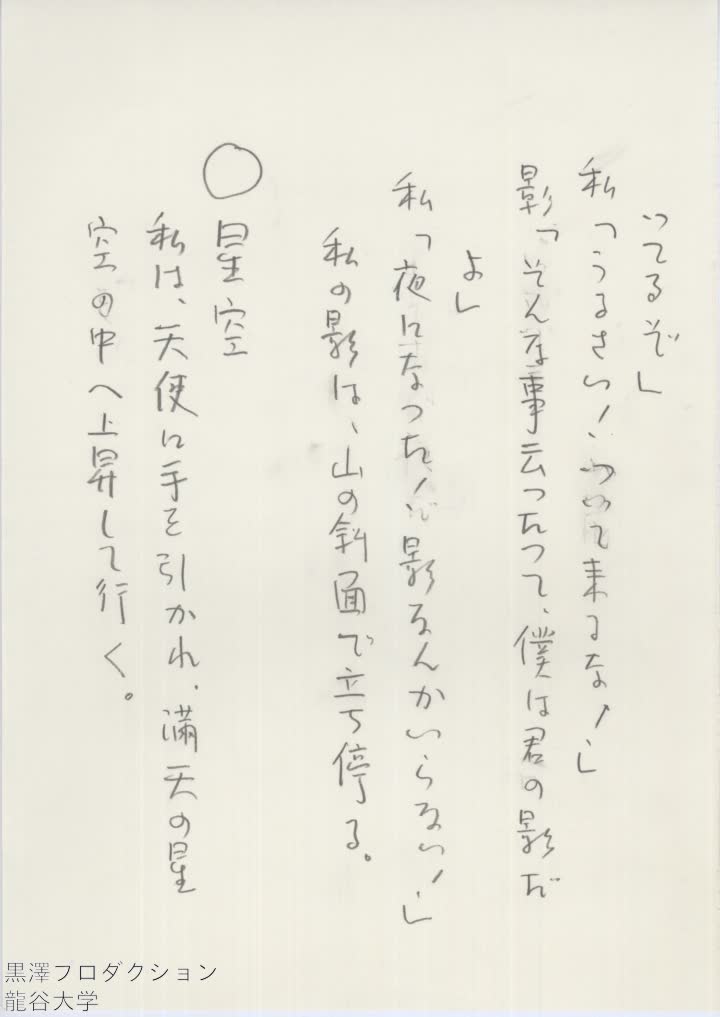 ってるぞ」
私「うるさい！ついて来るな！」
影「そんな事云ったって、僕は君の影だ
よ」
私「夜になった！影なんかいらない！」
私の影は、山の斜面で立ち停る。
○ 星空
私は、天使に手を引かれ、満天の星
空の中へ上昇して行く。
黒澤プロダクション
龍谷大学